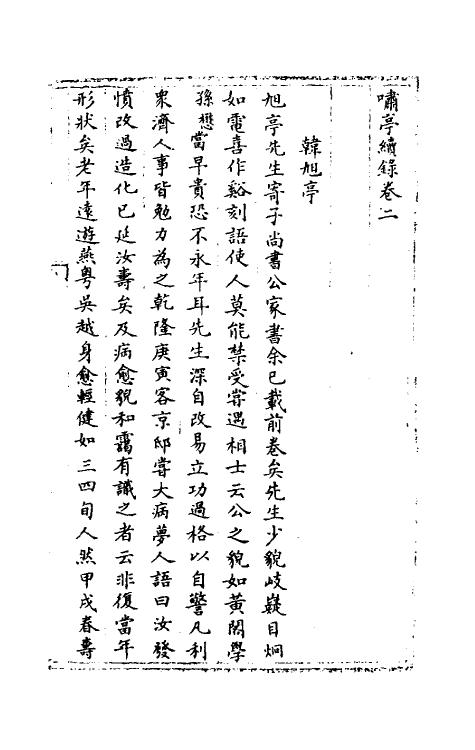 嘯亭續錄卷二
韓旭亭
旭亭先生寄子尚書公家書余已載前卷矣先生少貌岐嶷目炯
如電喜作谿刻語使人莫能禁受常遇相士云公之貌如黃閣學
孫懋當早貴恐不永年耳先生深自改易立功過格以自警凡利
衆濟人事皆勉力為之乾隆庚寅客京邸嘗大病夢人語曰汝發
憤改過造化已延汝壽矣及病愈貌和靄有識之者云非復當年
形狀矣老年遠遊燕粵吳越身愈輕健如三四旬人然甲戌春壽